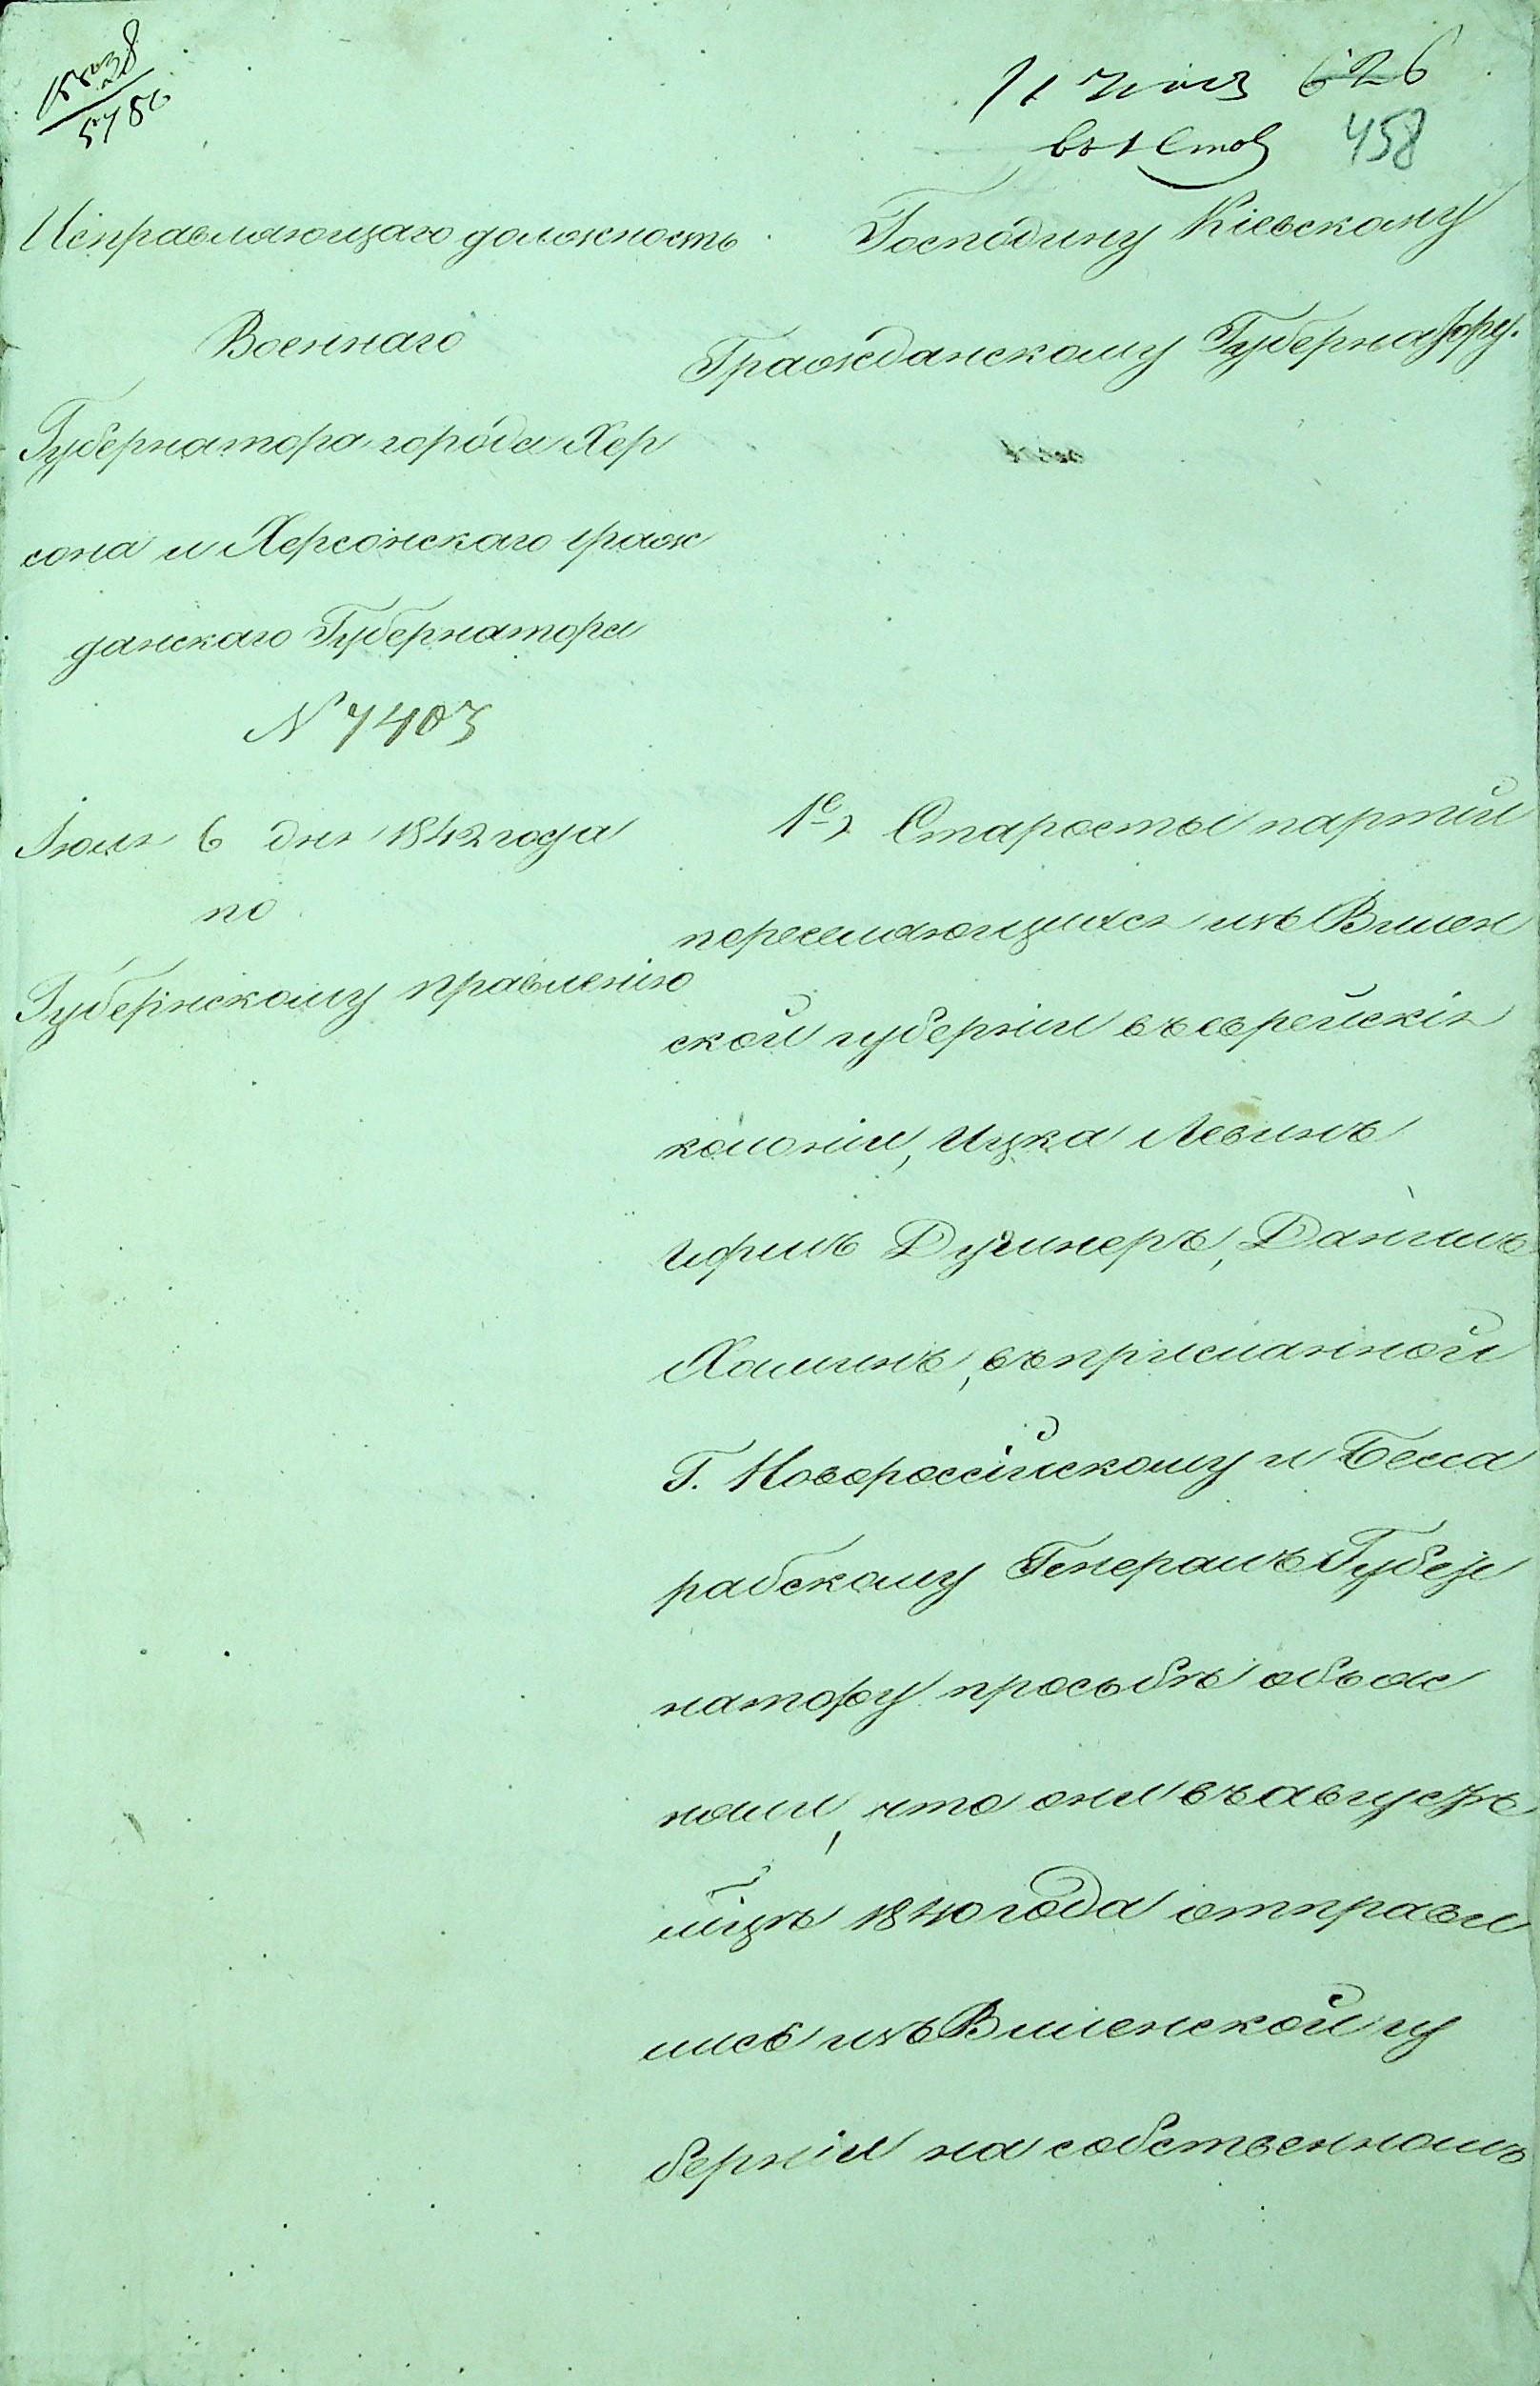 15538
5780
11 Июля 626
въ 1 Стол 458
Исправляющаго должность
Военнаго
Губернатора города Хер
сона и Херсонскаго граж
данскаго Губернатора
N 7403
Іюля 6 дня 1842 года
по
Губернскому правленію
Господину Кіевскому
Гражданскому Губернатору.
1е, Старосты партіи
переселяющихся изъ Вилен
ской губерніи въ еврейскія
колоніи, Ицка Левинъ
Даніилъ
въ присланной
Г. Новороссійскому и Бесса
рабскому Генералъ Губер
натору просьбѣ объяс
нили, что они въ августѣ
мцѣ 1840 года отправи
лись изъ Виленской гу
берніи на собственномъ